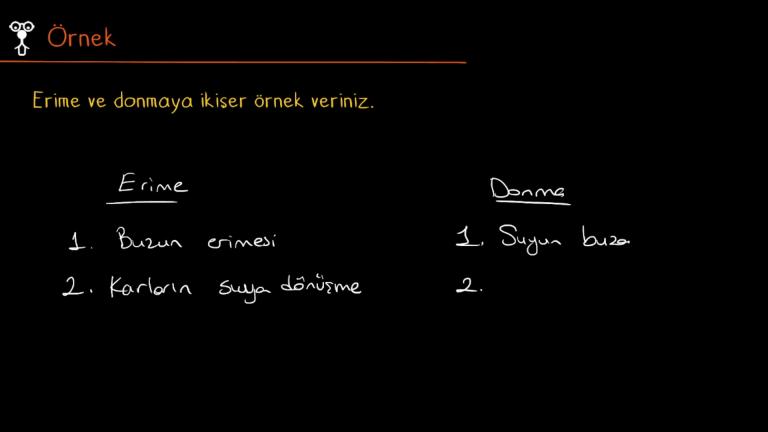 Örnek
Erime ve donmaya ikiser örnek veriniz.
Erime
1. Buzun erimesi
2. Karların suya dönüşme
Donma
1. Suyun buza
2.